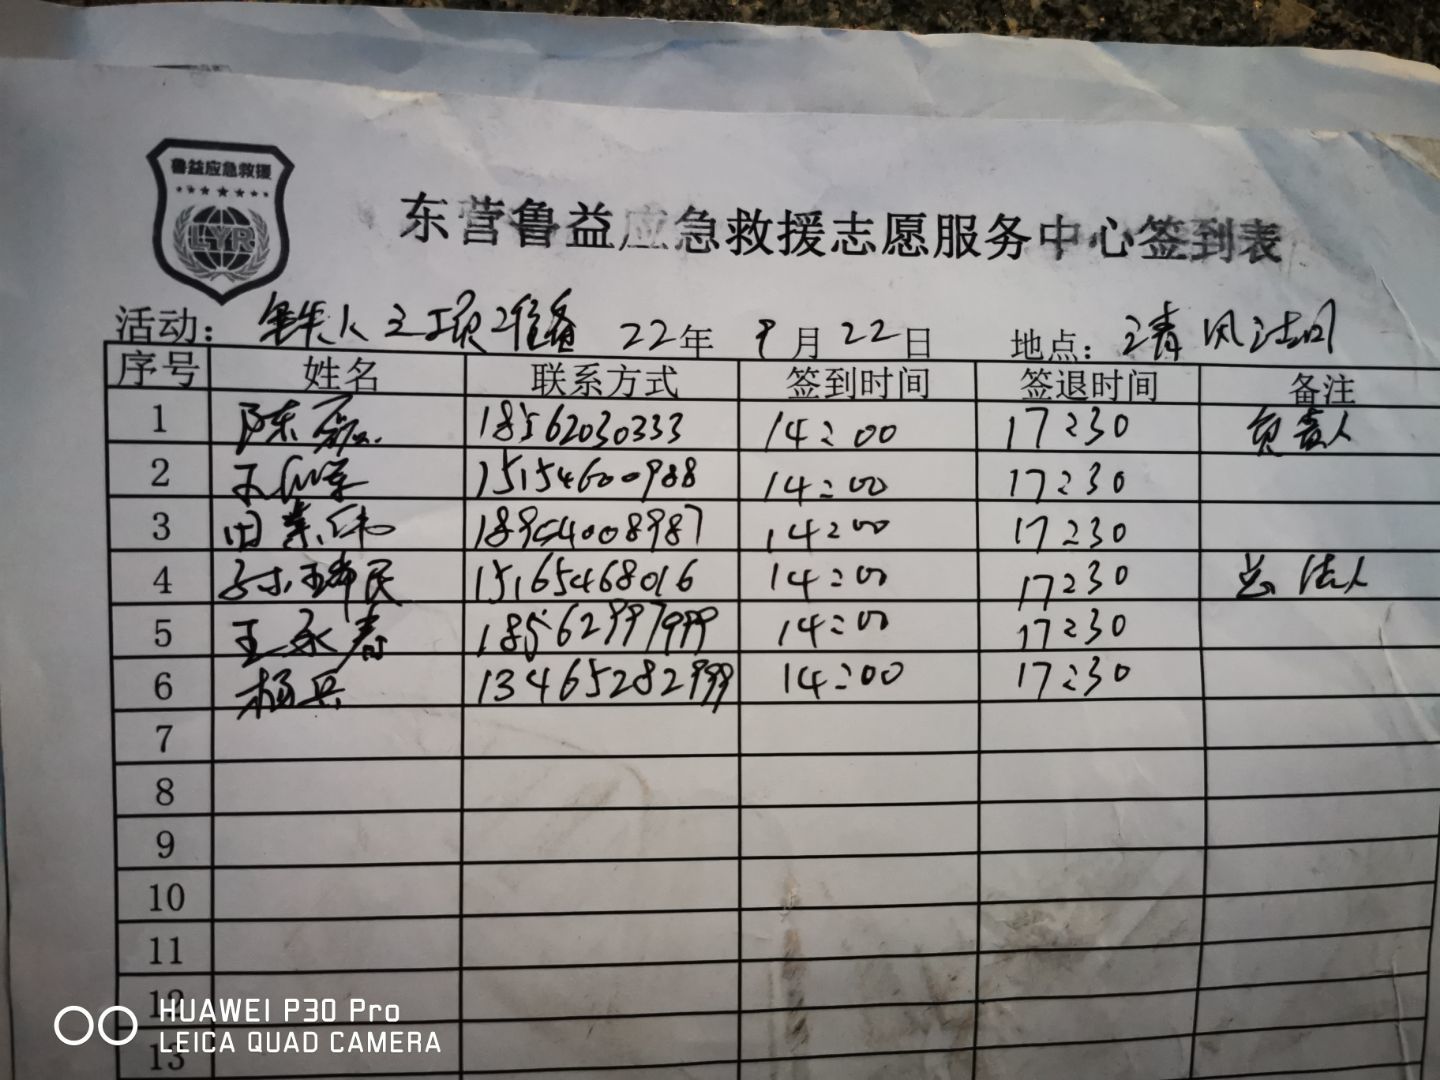 鲁益应急救援
LYR
东营鲁益应急救援志愿服务中心签到表
活动: 铁人三项准备 22年 9月22日 地点: 清风湖
序号 姓名 联系方式 签到时间 签退时间 备注
1 陈磊 18562030333 14:00 17:30 负责人
2 15154600988 14:00 17:30
3 田荣伟 18954008987 14:00 17:30
4 孙瑞民 15165468016 14:00 17:30 法人
5 王永春 18562997999 14:00 17:30
6 杨兵 13465282999 14:00 17:30
7
8
9
10
11
12
13
HUAWEI P30 Pro
LEICA QUAD CAMERA